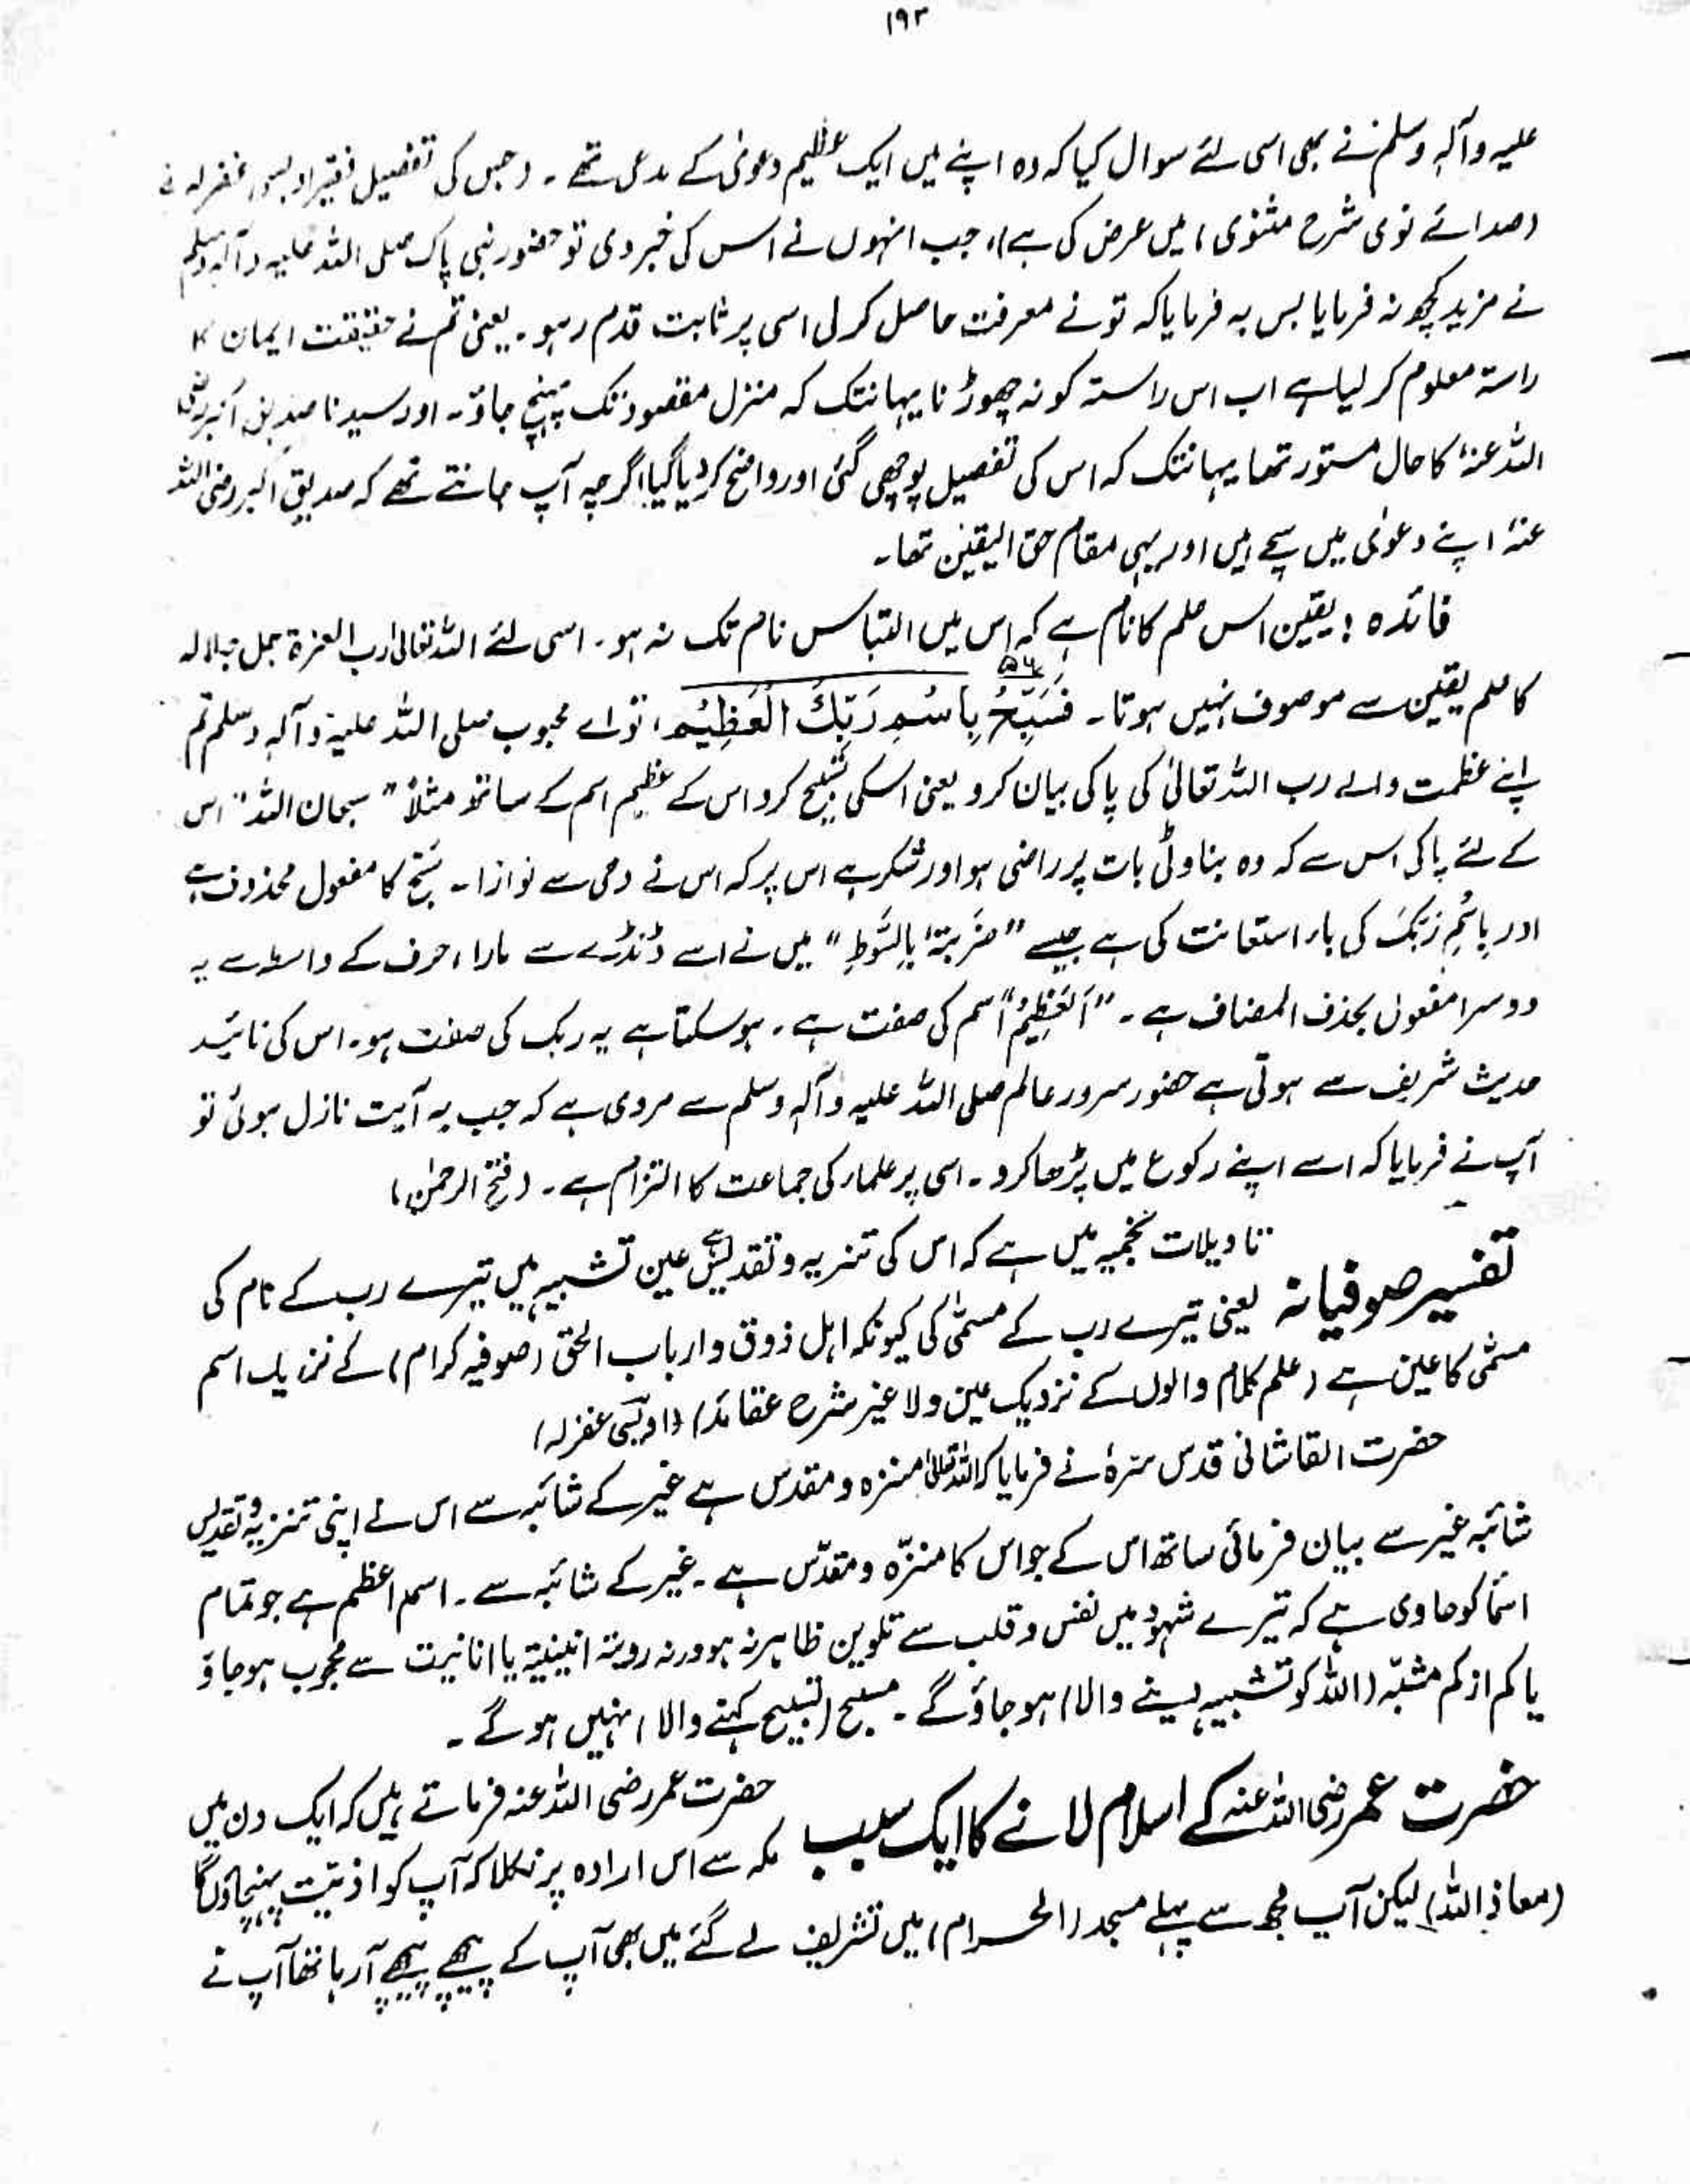 ۱۹۳
علیہ وآلہٖ وسلم نے بھی اسی لئے سوال کیا کہ وہ اپنے میں ایک عظیم دعویٰ کے مدعی تھے ۔ (جس کی تفصیل فقیر اویسی غفرلہ نے
(صدائے نوی شرح مثنوی) میں عرض کی ہے)، جب انہوں نے اس کی خبر دی تو حضور نبی پاک صلی اللہ علیہ وآلہٖ وسلم
نے مزید کچھ نہ فرمایا بس یہ فرمایا کہ تو نے معرفت حاصل کر لی اسی پر ثابت قدم رہو ۔ یعنی تم نے حقیقت ایمان کا
راستہ معلوم کر لیا ہے اب اس راستہ کو نہ چھوڑنا یہانتک کہ منزل مقصود تک پہنچ جاؤ ۔ اور سیدنا صدیق اکبر رضی
اللہ عنہٗ کا حال مستور تھا یہانتک کہ اس کی تفصیل پوچھی گئی اور واضح کر دیا گیا اگرچہ آپ جانتے تھے کہ صدیق اکبر رضی اللہ
عنہٗ اپنے دعوٰی میں سچے ہیں اور یہی مقام حق الیقین تھا۔
فائدہ : یقین اس علم کا نام ہے کہ اس میں التباس نام تک نہ ہو۔ اسی لئے اللہ تعالیٰ رب العزۃ جل جلالہ
کا علم یقین سے موصوف نہیں ہوتا ۔ فَسَبِّحْ بِاسْمِ رَبِّكَ الْعَظِیْمِ، تو اے محبوب صلی اللہ علیہ وآلہٖ وسلم تم
اپنے عظمت والے رب اللہ تعالیٰ کی پاکی بیان کرو یعنی اسکی تسبیح کرو اس کے عظیم اسم کے ساتھ مثلاً " سبحان اللہ " اس
کے لئے پاکی اس سے کہ وہ بناوٹی بات پر راضی ہو اور شکر ہے اس پر کہ اس نے وحی سے نوازا ۔ سَبِّح کا مفعول محذوف ہے
اور بِاسْمِ رَبِّكَ کی باء استعانت کی ہے جیسے " ضَرَبتُہٗ بِالسَّوطِ " میں نے اسے ڈنڈے سے مارا، حرف کے واسطہ سے یہ
دوسرا مفعول بحذف المضاف ہے ۔ " اَلعَظِیْمُ" اسم کی صفت ہے ۔ ہو سکتا ہے یہ ربک کی صفت ہو ۔ اس کی تائید
حدیث شریف سے ہوتی ہے حضور سرور عالم صلی اللہ علیہ وآلہٖ وسلم سے مروی ہے کہ جب یہ آیت نازل ہوئی تو
آپ نے فرمایا کہ اسے اپنے رکوع میں پڑھا کرو ۔ اسی پر علماء کی جماعت کا التزام ہے ۔ (فتح الرحمٰن)
تفسیر صوفیانہ تاویلات نجمیہ میں ہے کہ اس کی تنزیہ و تقدیس عین تشبیہ میں تیرے رب کے نام کی
یعنی تیرے رب کے مسمّٰی کی کیونکہ اہل ذوق و ارباب الحق (صوفیہ کرام) کے نزدیک اسم
مسمّٰی کا عین ہے (علم کلام والوں کے نزدیک عین ولا غیر شرح عقائد) (اویسی غفرلہ)
حضرت القاشانی قدس سرہٗ نے فرمایا کہ اللہ تعالیٰ منزہ و مقدس ہے غیر کے شائبہ سے اس نے اپنی تنزیہ و تقدیس
شائبہ غیر سے بیان فرمائی ساتھ اس کے جو اس کا منزّہ و مقدّس ہے ۔ غیر کے شائبہ سے ۔ اسم اعظم ہے جو تمام
اسماء کو حاوی ہے کہ تیرے شہود میں نفس و قلب سے تلوین ظاہر نہ ہو ورنہ رویتہ اثنینیۃ یا انانیت سے محجوب ہو جاؤ
یا کم از کم مشبّہ (اللہ کو تشبیہ دینے والا) ہو جاؤ گے ۔ مسبح (تسبیح کہنے والا) نہیں ہو گے ۔
حضرت عمر رضی اللہ عنہ کے اسلام لانے کا ایک سبب حضرت عمر رضی اللہ عنہ فرماتے ہیں کہ ایک دن میں
مکہ سے اس ارادہ پر نکلا کہ آپ کو اذیّت پہنچاؤں گا
(معاذ اللہ) لیکن آپ مجھ سے پہلے مسجد (الحرام) میں تشریف لے گئے میں بھی آپ کے پیچھے پیچھے آ رہا تھا آپ نے